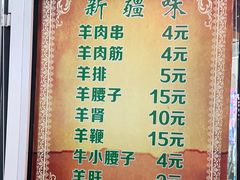 新疆味
羊肉串 4元
羊肉筋 4元
羊排 5元
羊腰子 15元
羊肾 10元
羊鞭 15元
牛小腰子 4元
羊肝